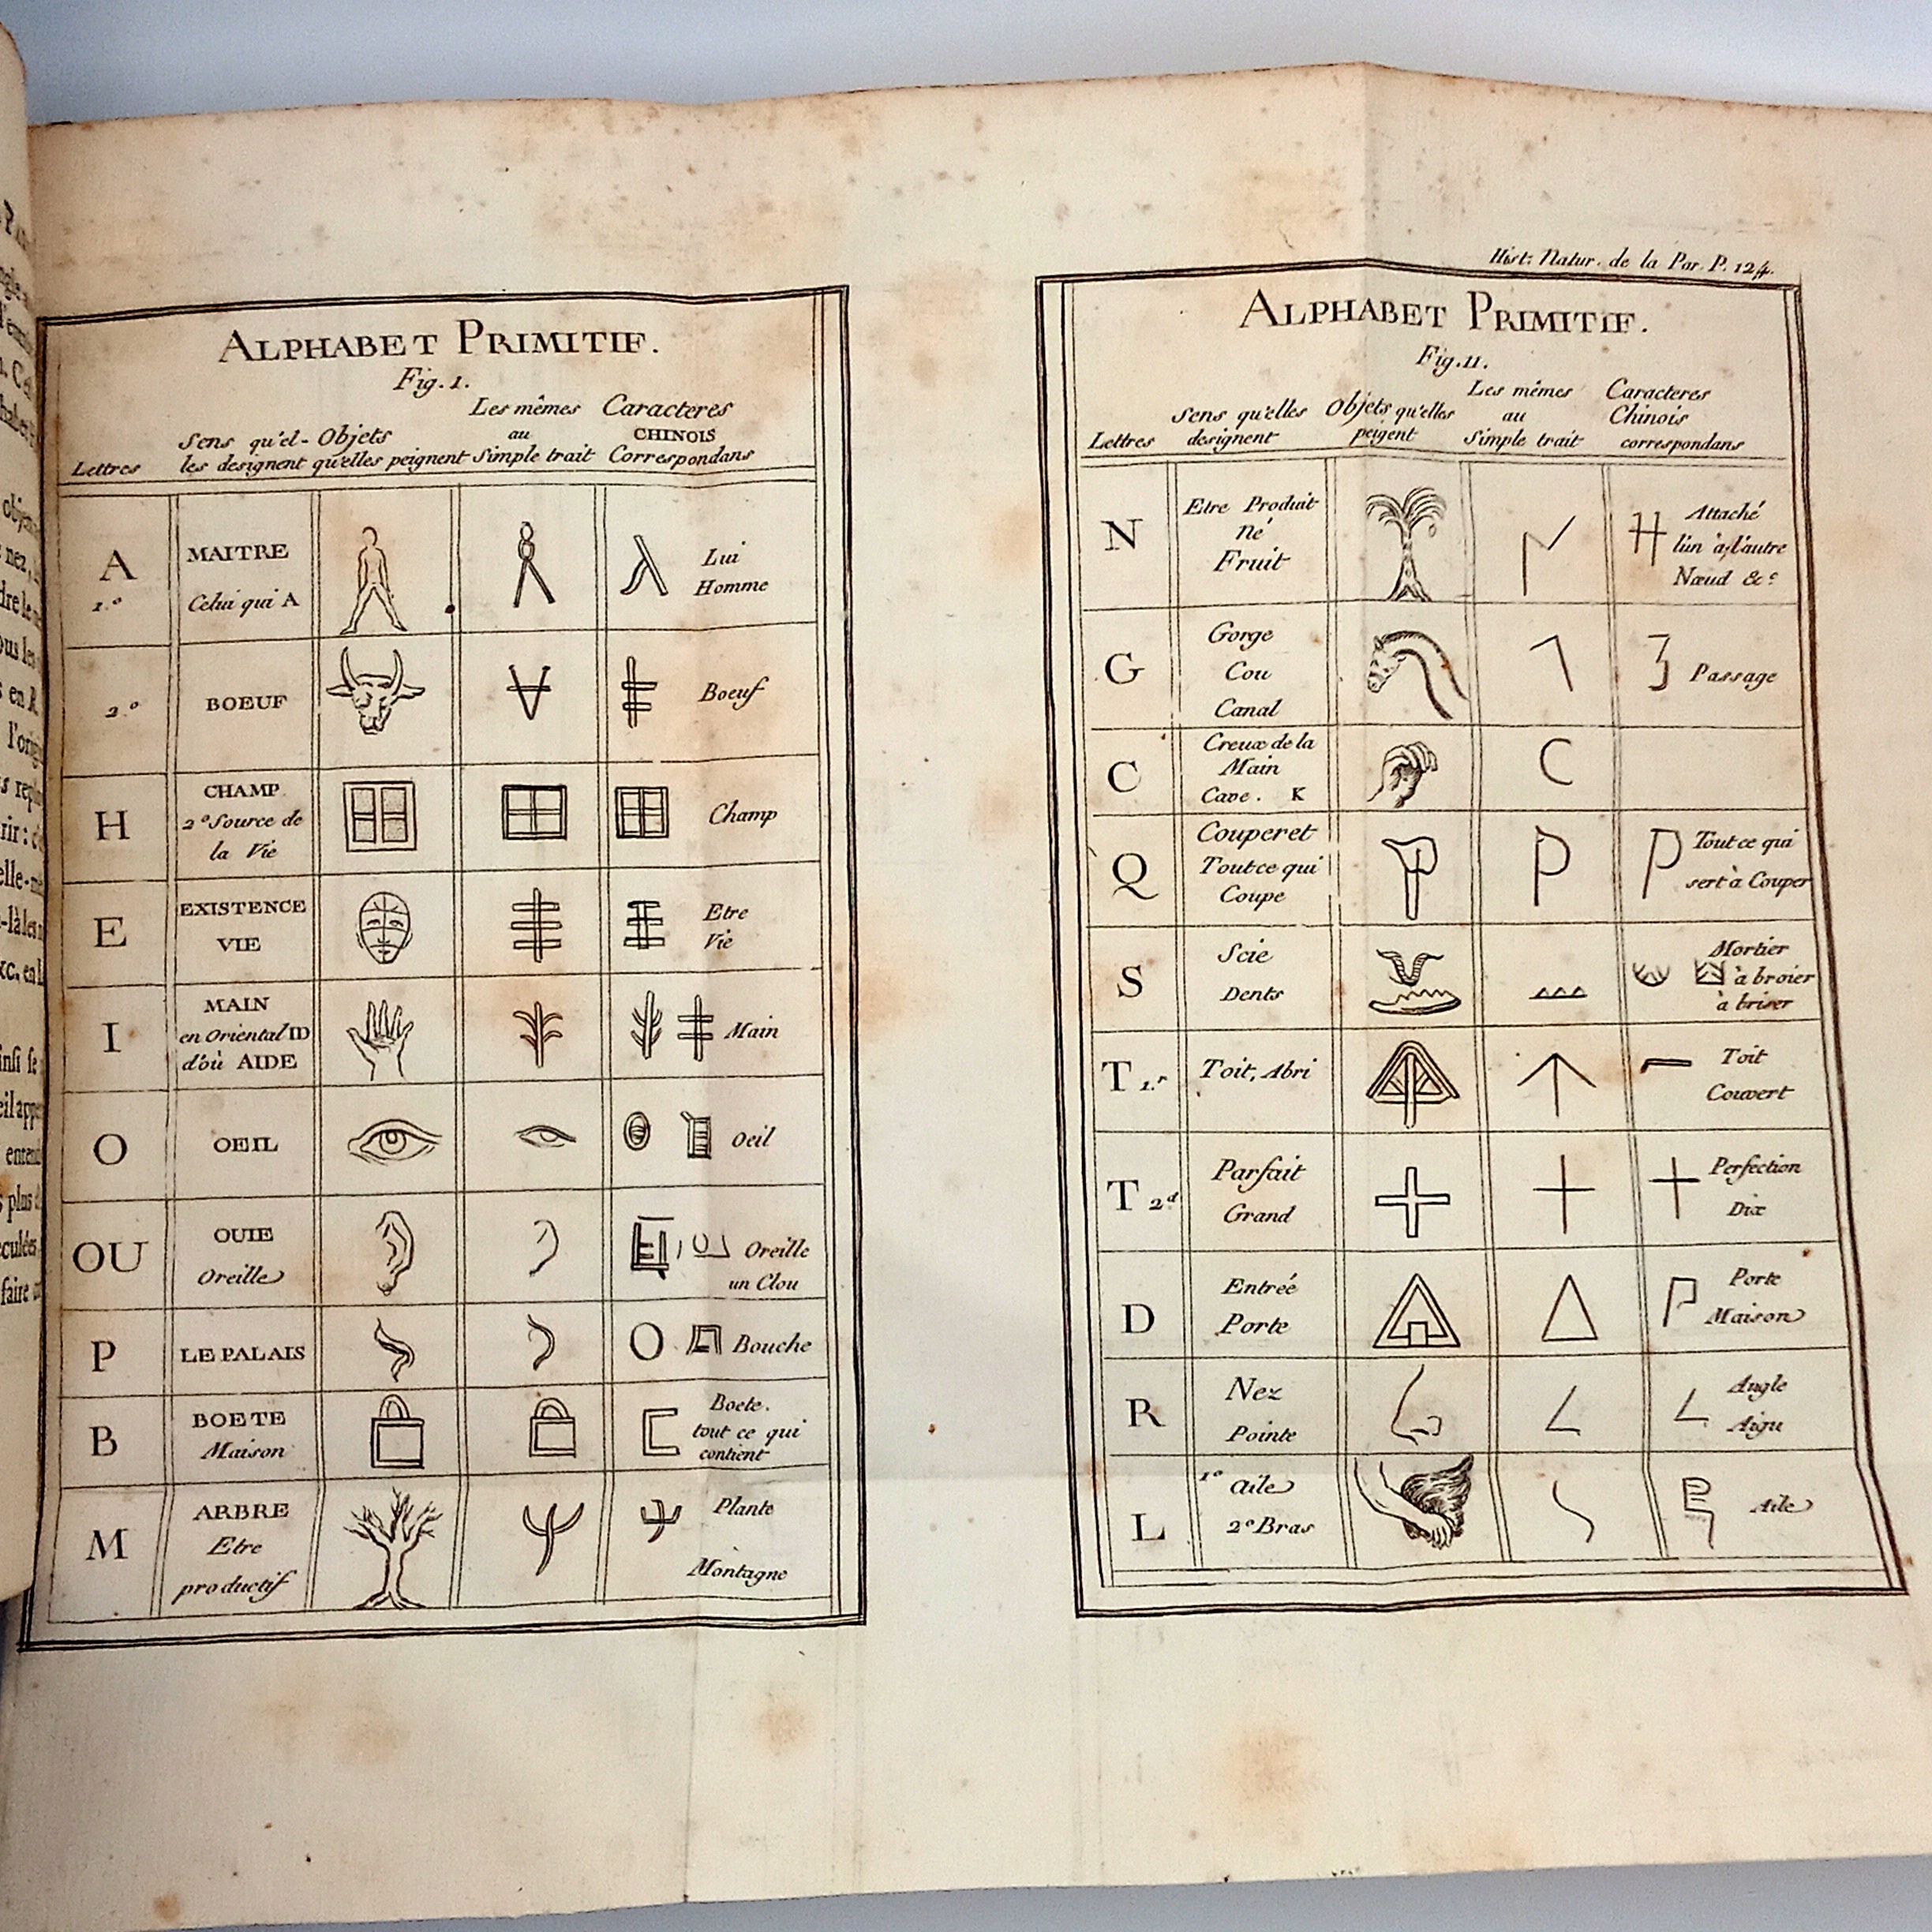 Hist. Natur. de la Par. P. 124.
ALPHABET PRIMITIF.
Fig. I.
Lettres
Sens qu'el-
les designent
Objets
qu'elles peignent
Les mêmes
au
Simple trait
Caracteres
CHINOIS
Correspondans
A
1.º
MAITRE
Celui qui A
Lui
Homme
2.º
BOEUF
Boeuf
H
CHAMP
2º Source de
la Vie
Champ
E
EXISTENCE
VIE
Etre
Vie
I
MAIN
en Oriental ID
d'où AIDE
Main
O
OEIL
Oeil
OU
OUIE
Oreille
Oreille
un Clou
P
LE PALAIS
Bouche
B
BOETE
Maison
Boete.
tout ce qui
contient
M
ARBRE
Etre
productif
Plante
Montagne
ALPHABET PRIMITIF.
Fig. II.
Lettres
Sens qu'elles
designent
Objets qu'elles
peigent
Les mêmes
au
Simple trait
Caracteres
Chinois
correspondans
N
Etre Produit
né
Fruit
Attaché
l'un à l'autre
Nœud &c
G
Gorge
Cou
Canal
Passage
C
Creux de la
Main
Cave. K
Q
Couperet
Tout ce qui
Coupe
Tout ce qui
sert à Couper
S
Scie
Dents
Mortier
à broier
à briser
T 1.r
Toit, Abri
Toit
Couvert
T 2.d
Parfait
Grand
Perfection
Dix
D
Entrée
Porte
Porte
Maison
R
Nez
Pointe
Angle
Aigu
L
1º Aile
2º Bras
Aile